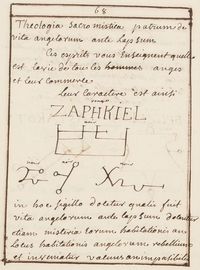 68
Theologia Sacro mistica patrum de
vita angelorum ante lapsum
Ces esprits vous Enseignent quelle
est la vie de tous les hommes anges
et leur commerce
Leur Caractere est ainsi
ZAPHKIEL
in hoc sigillo docetur qualis fuit
vita angelorum ante lapsum docetur
etiam misteria eorum habitationis an
Locus habitationis angelorum rebellium
et